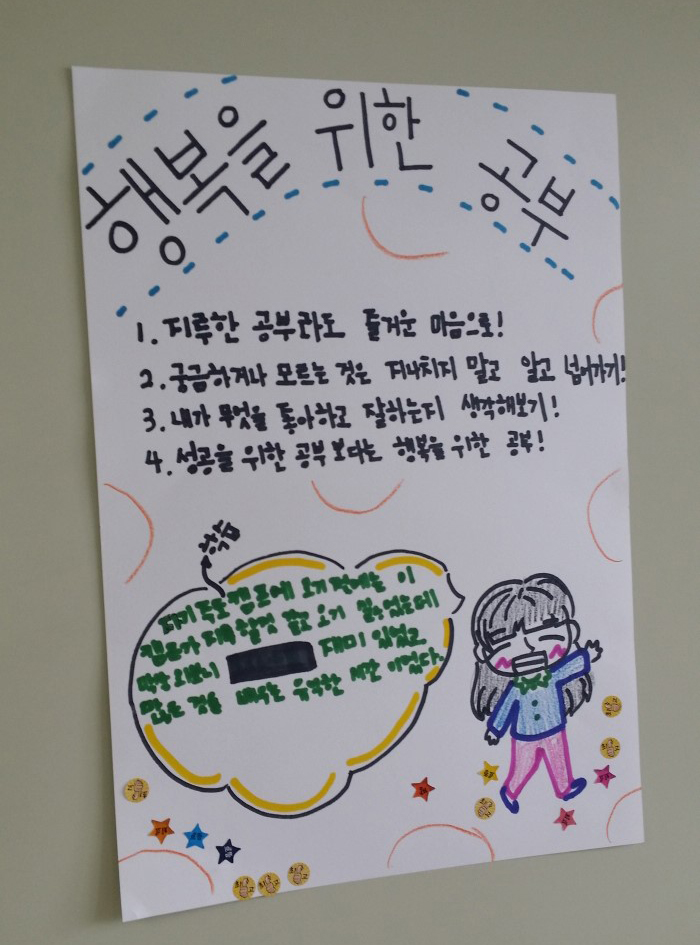 행복을 위한 공부
1. 지루한 공부라도 즐거운 마음으로!
2. 궁금하거나 모르는 것은 지나치지 말고 알고 넘어가기!
3. 내가 무엇을 좋아하고 잘하는지 생각해보기!
4. 성공을 위한 공부 보다는 행복을 위한 공부!
자기주도캠프에 오기 전에는 이
캠프가 지루할것 같고 오기 싫었는데
막상 오보니 재미 있었고
많은 것을 배우는 유익한 시간 이었다.